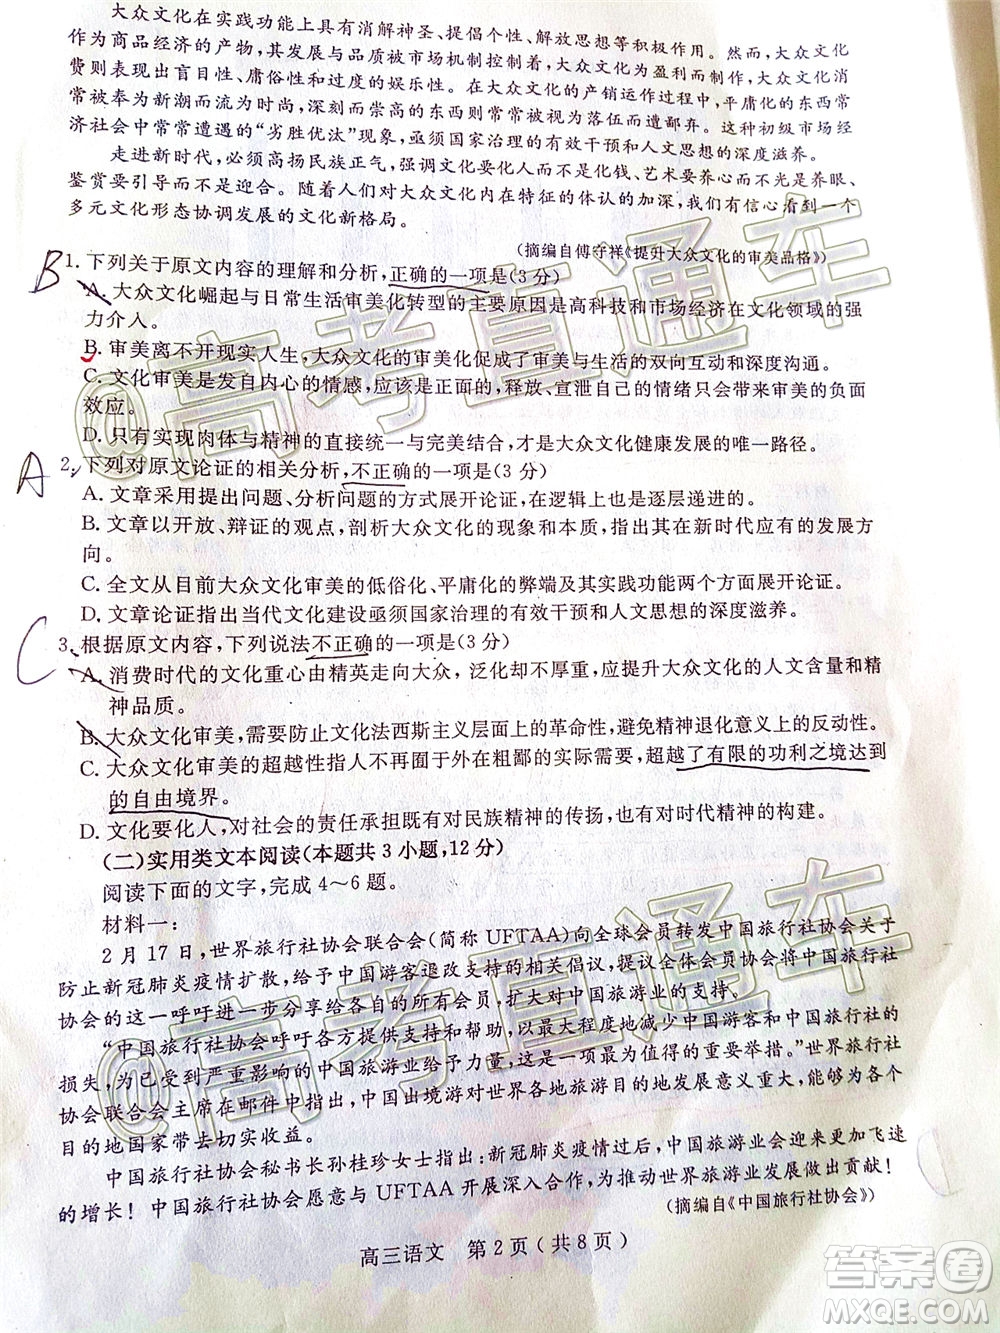 大众文化在实践功能上具有消解神圣、提倡个性、解放思想等积极作用。然而,大众文化
作为商品经济的产物,其发展与生产都被市场机制控制着,大众文化为盈利而制作,大众文化消
费则表现出盲目性、庸俗性和过度的娱乐性。在大众文化的产销运作过程中,平庸化的东西常
常被奉为新潮而流行,深刻而崇高的东西则常常被视为落伍而遭鄙弃。这种初级市场经
济社会中常常遭遇的“劣胜优汰”现象,亟须国家治理的有效干预和人文思想的深度滋养。
走进新时代,必须高扬民族正气,强调文化要化人而不是化钱、艺术要养心而不是养眼、
鉴赏要引导而不是迎合。随着人们对大众文化内在特征的体认的加深,我们有信心看到一个
多元文化形态协调发展的文化新格局。
(摘编自傅守祥《提升大众文化的审美品格》)
B 1. 下列关于原文内容的理解和分析,正确的一项是(3 分)
A. 大众文化崛起与日常生活审美化转型的主要原因是高科技和市场经济在文化领域的强
力介入。
B. 审美离不开现实人生,大众文化的审美化促成了审美与生活的双向互动和深度沟通。
C. 文化审美是发自内心的情感,应该是正面的,释放、宣泄自己的情绪只会带来审美的负面
效应。
D. 只有实现肉体与精神的直接统一与完美结合,才是大众文化健康发展的唯一路径。
A 2. 下列对原文论证的相关分析,不正确的一项是(3 分)
A. 文章采用提出问题、分析问题的方式展开论证,在逻辑上也是逐层递进的。
B. 文章以开放、辩证的观点,剖析大众文化的现象和本质,指出其在新时代应有的发展方
向。
C. 全文从目前大众文化审美的低俗化、平庸化的弊端及其实践功能两个方面展开论证。
D. 文章论证指出当代文化建设亟须国家治理的有效干预和人文思想的深度滋养。
C 3. 根据原文内容,下列说法不正确的一项是(3 分)
A. 消费时代的文化重心由精英走向大众,泛化却不能泛滥,应提升大众文化的人文含量和精
神品质。
B. 大众文化审美,需要防止文化法西斯主义层面上的革命性,避免精神退化意义上的反动性。
C. 大众文化审美的超越性指人不再囿于外在粗鄙的实际需要,超越了有限的功利之境达到
的自由境界。
D. 文化要化人,对社会的责任承担既有对民族精神的传扬,也有对时代精神的构建。
(二)实用类文本阅读(本题共 3 小题,12 分)
阅读下面的文字,完成 4～6 题。
材料一:
2 月 17 日,世界旅行社协会联合会(简称 UFTAA)向全球会员转发中国旅行社协会关于
防止新冠肺炎疫情扩散,给予中国游客退改支持的相关倡议,提议全体会员协会将中国旅行社
协会的这一呼吁进一步分享给各自的所有会员,扩大对中国旅游业的支持。
“中国旅行社协会呼吁各方提供支持和帮助,以最大程度地减少中国游客和中国旅行社的
损失,为已经受到严重影响的中国旅游业给予力量,这是一项最为值得的重要举措。”世界旅行
社协会联合会主席在邮件中指出,中国出境游对世界各地旅游目的地发展意义重大,能够为各
目的地国家带去切实收益。
中国旅行社协会秘书长孙桂珍女士指出:新冠肺炎疫情过后,中国旅游业会迎来更加飞速
的增长!中国旅行社协会愿意与 UFTAA 开展深入合作,为推动世界旅游业发展做出贡献!
(摘编自《中国旅行社协会》)
高三语文 第 2 页(共 8 页)
@高考直通车
@高考直通车
答案圈
MXQE.COM